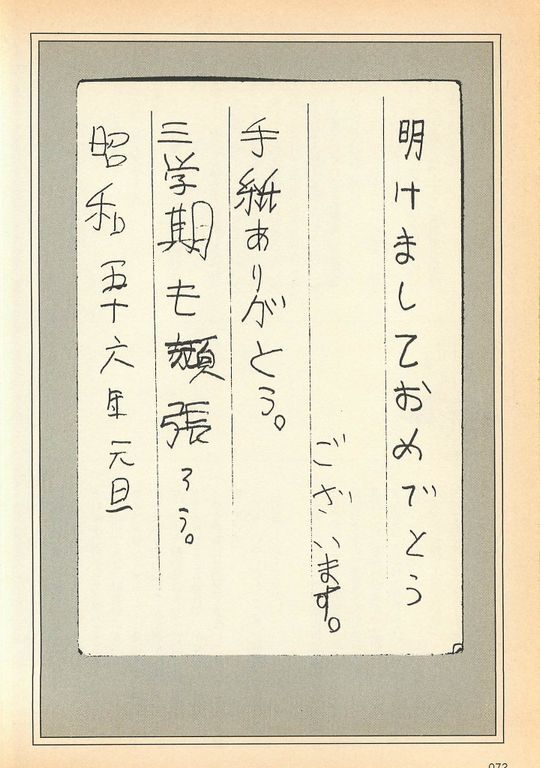 明けましておめでとう
ございます。
手紙ありがとう。
三学期も頑張ろう。
昭和五十六年元旦
073